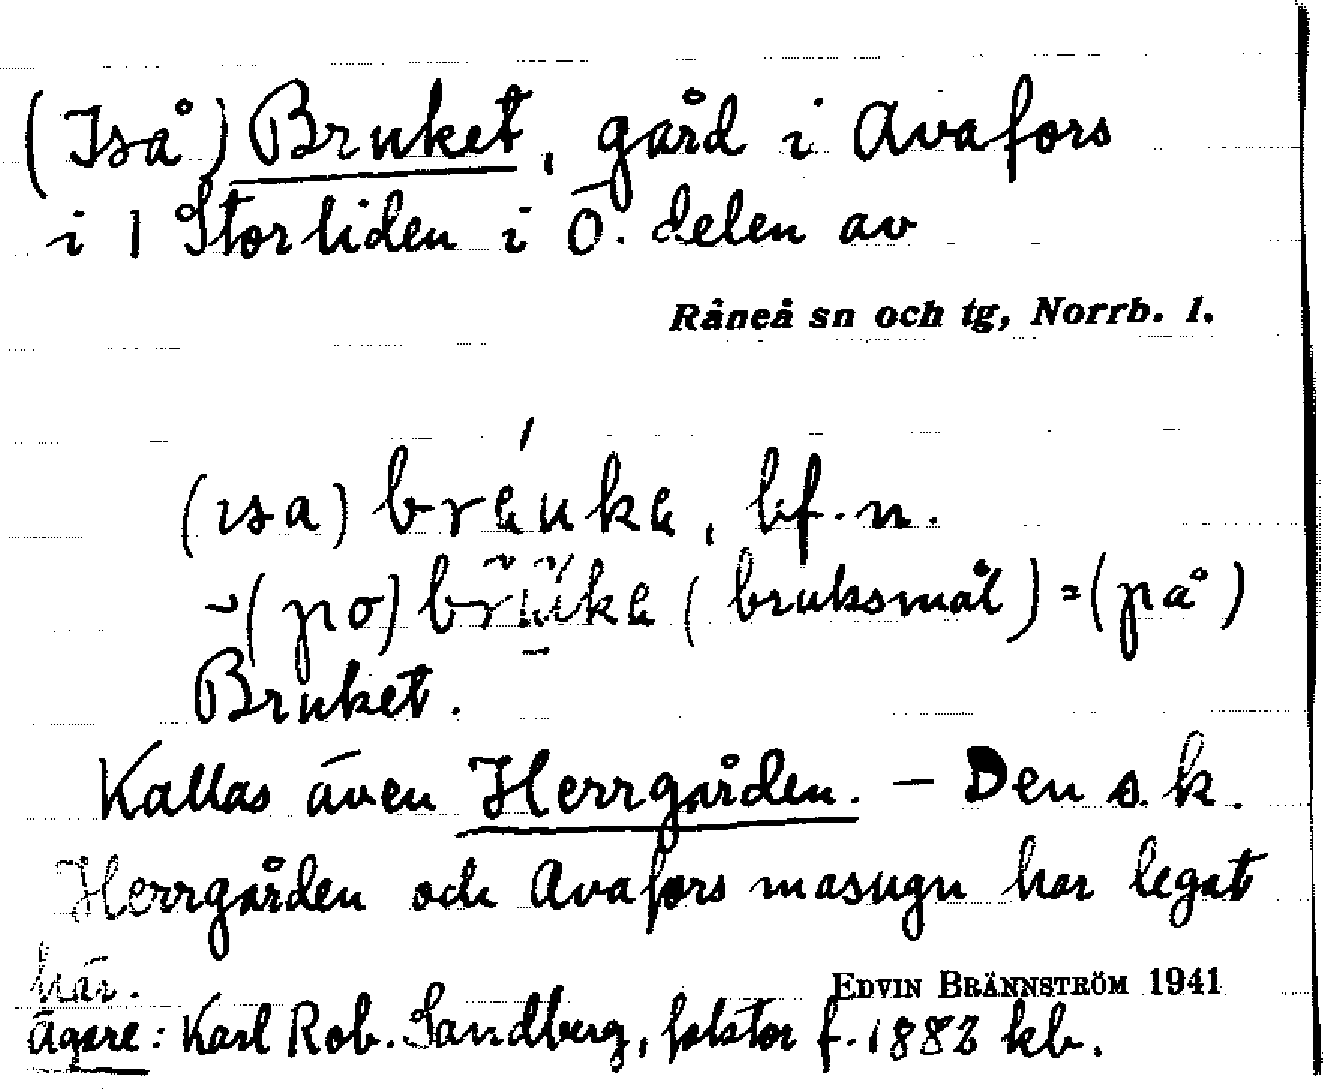 (Iså) Bruket, gård i Avafors
i 1 Storliden i Ö. delen av
Råneå sn och tg, Norrb. l.
(ısa) bräuka, bf. n.
~ (po) brüka (bruksmål) = (på)
Bruket.
Kallas även Herrgården. — Den s.k.
Herrgården och Avafors masugn har legat
här.
EDVIN BRÄNNSTRÖM 1941
Ägare: Karl Rob. Sandberg, f. 1882 kb.